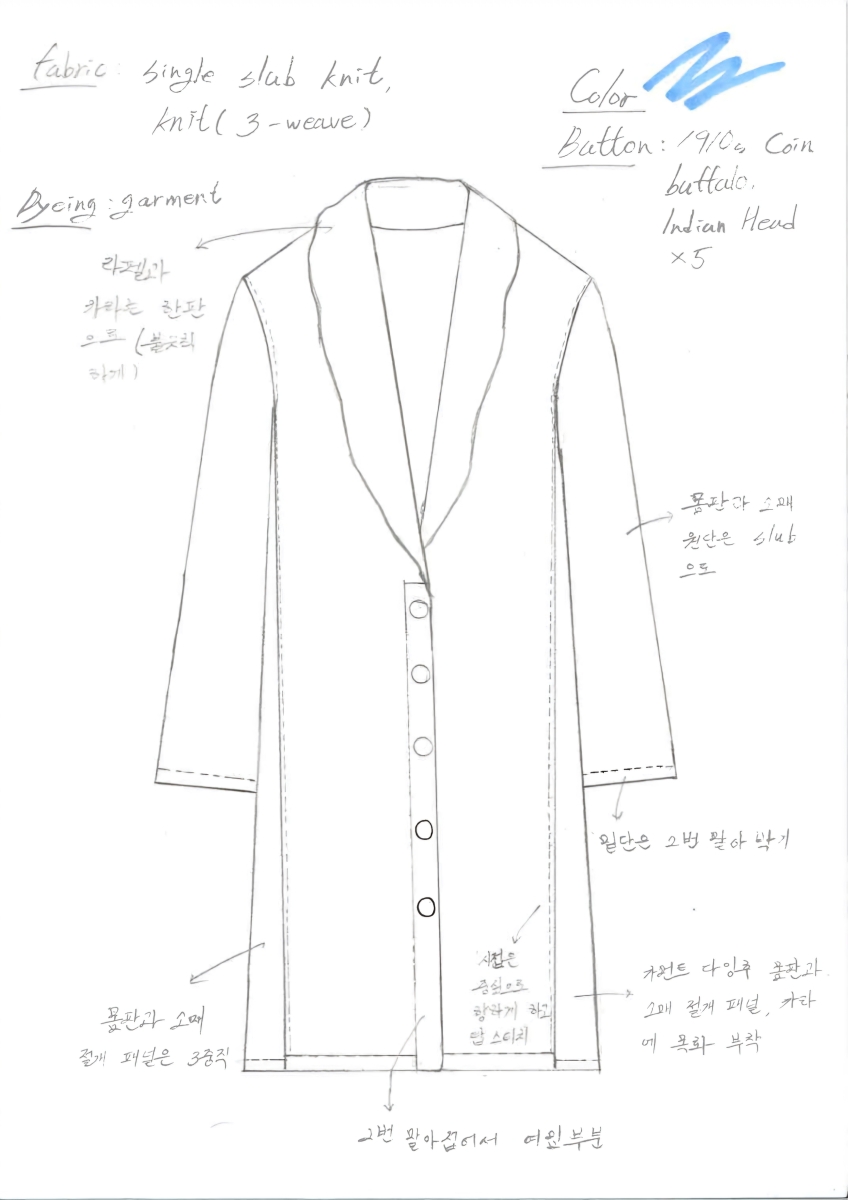 Fabric: single slub knit,
knit(3-weave)
Color
Button: 1910s Coin
buffalo.
Indian Head
×5
Dyeing: garment
라펠과
카라는 한판
으로 (불규칙
하게)
몸판과 소매
원단은 slub
으로
밑단은 2번 말아 박기
시접은
중심으로
향하게 하고
탑 스티치
가먼트 다잉후 몸판과
소매 절개 패널, 카라
에 목화 부착
몸판과 소매
절개 패널은 3중직
2번 말아접어서 여밈부분